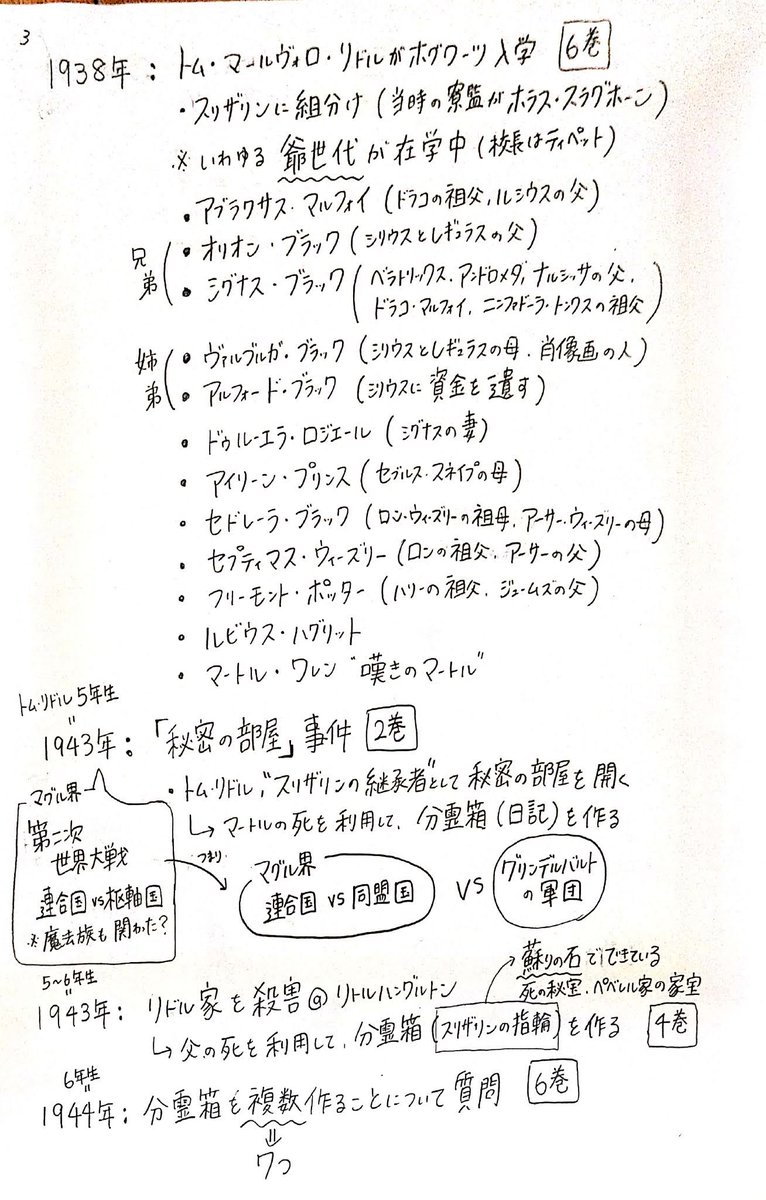 3
1938年: トム・マールヴォロ・リドルがホグワーツ入学 6巻
・スリザリンに組分け(当時の寮監がホラス・スラグホーン)
※いわゆる爺世代が在学中(校長はディペット)
・アブラクサス・マルフォイ(ドラコの祖父,ルシウスの父)
兄弟
・オリオン・ブラック(シリウスとレギュラスの父)
・シグナス・ブラック(ベラトリックス、アンドロメダ,ナルシッサの父,
ドラコ・マルフォイ,ニンファドーラ・トンクスの祖父)
姉弟
・ヴァルブルガ・ブラック(シリウスとレギュラスの母.肖像画の人)
・アルファード・ブラック(シリウスに資金を遺す)
・ドゥルーエラ・ロジエール(シグナスの妻)
・アイリーン・プリンス(セブルス・スネイプの母)
・セドレーラ・ブラック(ロン・ウィーズリーの祖母,アーサー・ウィーズリーの母)
・セプティマス・ウィーズリー(ロンの祖父,アーサーの父)
・フリーモント・ポッター(ハリーの祖父,ジェームズの父)
・ルビウス・ハグリット
・マートル・ワレン"嘆きのマートル"
トム・リドル5年生
1943年:「秘密の部屋」事件 2巻
・トム・リドル,"スリザリンの継承者"として秘密の部屋を開く
↳マートルの死を利用して、分霊箱(日記)を作る
マグル界
第二次
世界大戦
連合国vs枢軸国
※魔法族も関わった?
つまり
マグル界
連合国 vs 同盟国
vs
グリンデルバルト
の軍団
5~6年生
1943年: リドル家を殺害@リトルハングルトン
↳父の死を利用して、分霊箱(スリザリンの指輪)を作る 4巻
→蘇りの石でできている
死の秘宝.ペベレル家の家宝
6年生
1944年: 分霊箱を複数作ることについて質問 6巻
⇓
7つ